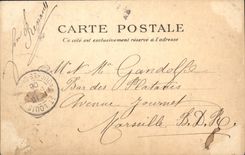 CARTE POSTALE
Ce côté est exclusivement réservé à l'adresse
M et Mme Gandolfe
Bar des Platanes
Avenue Journet
Marseille B.D.R.